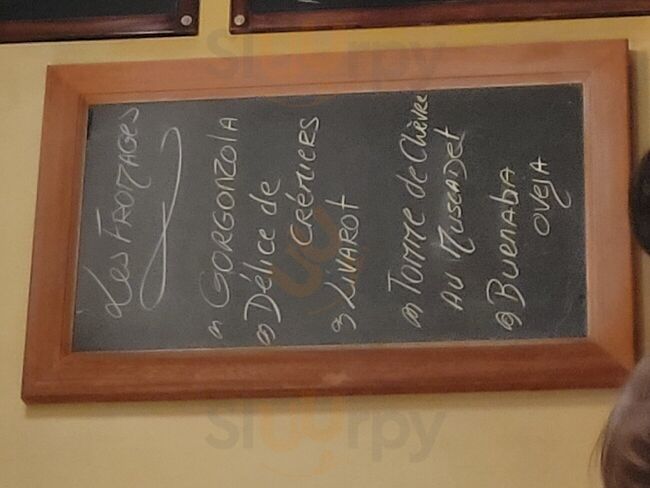 Les FROMAGES
GORGONZOLA
Délice de
CRÉMIERS
LIVAROT
TOMME de Chèvre
AU MUSCADET
BUENALBA
OVEJA
Sluurpy
Sluurpy